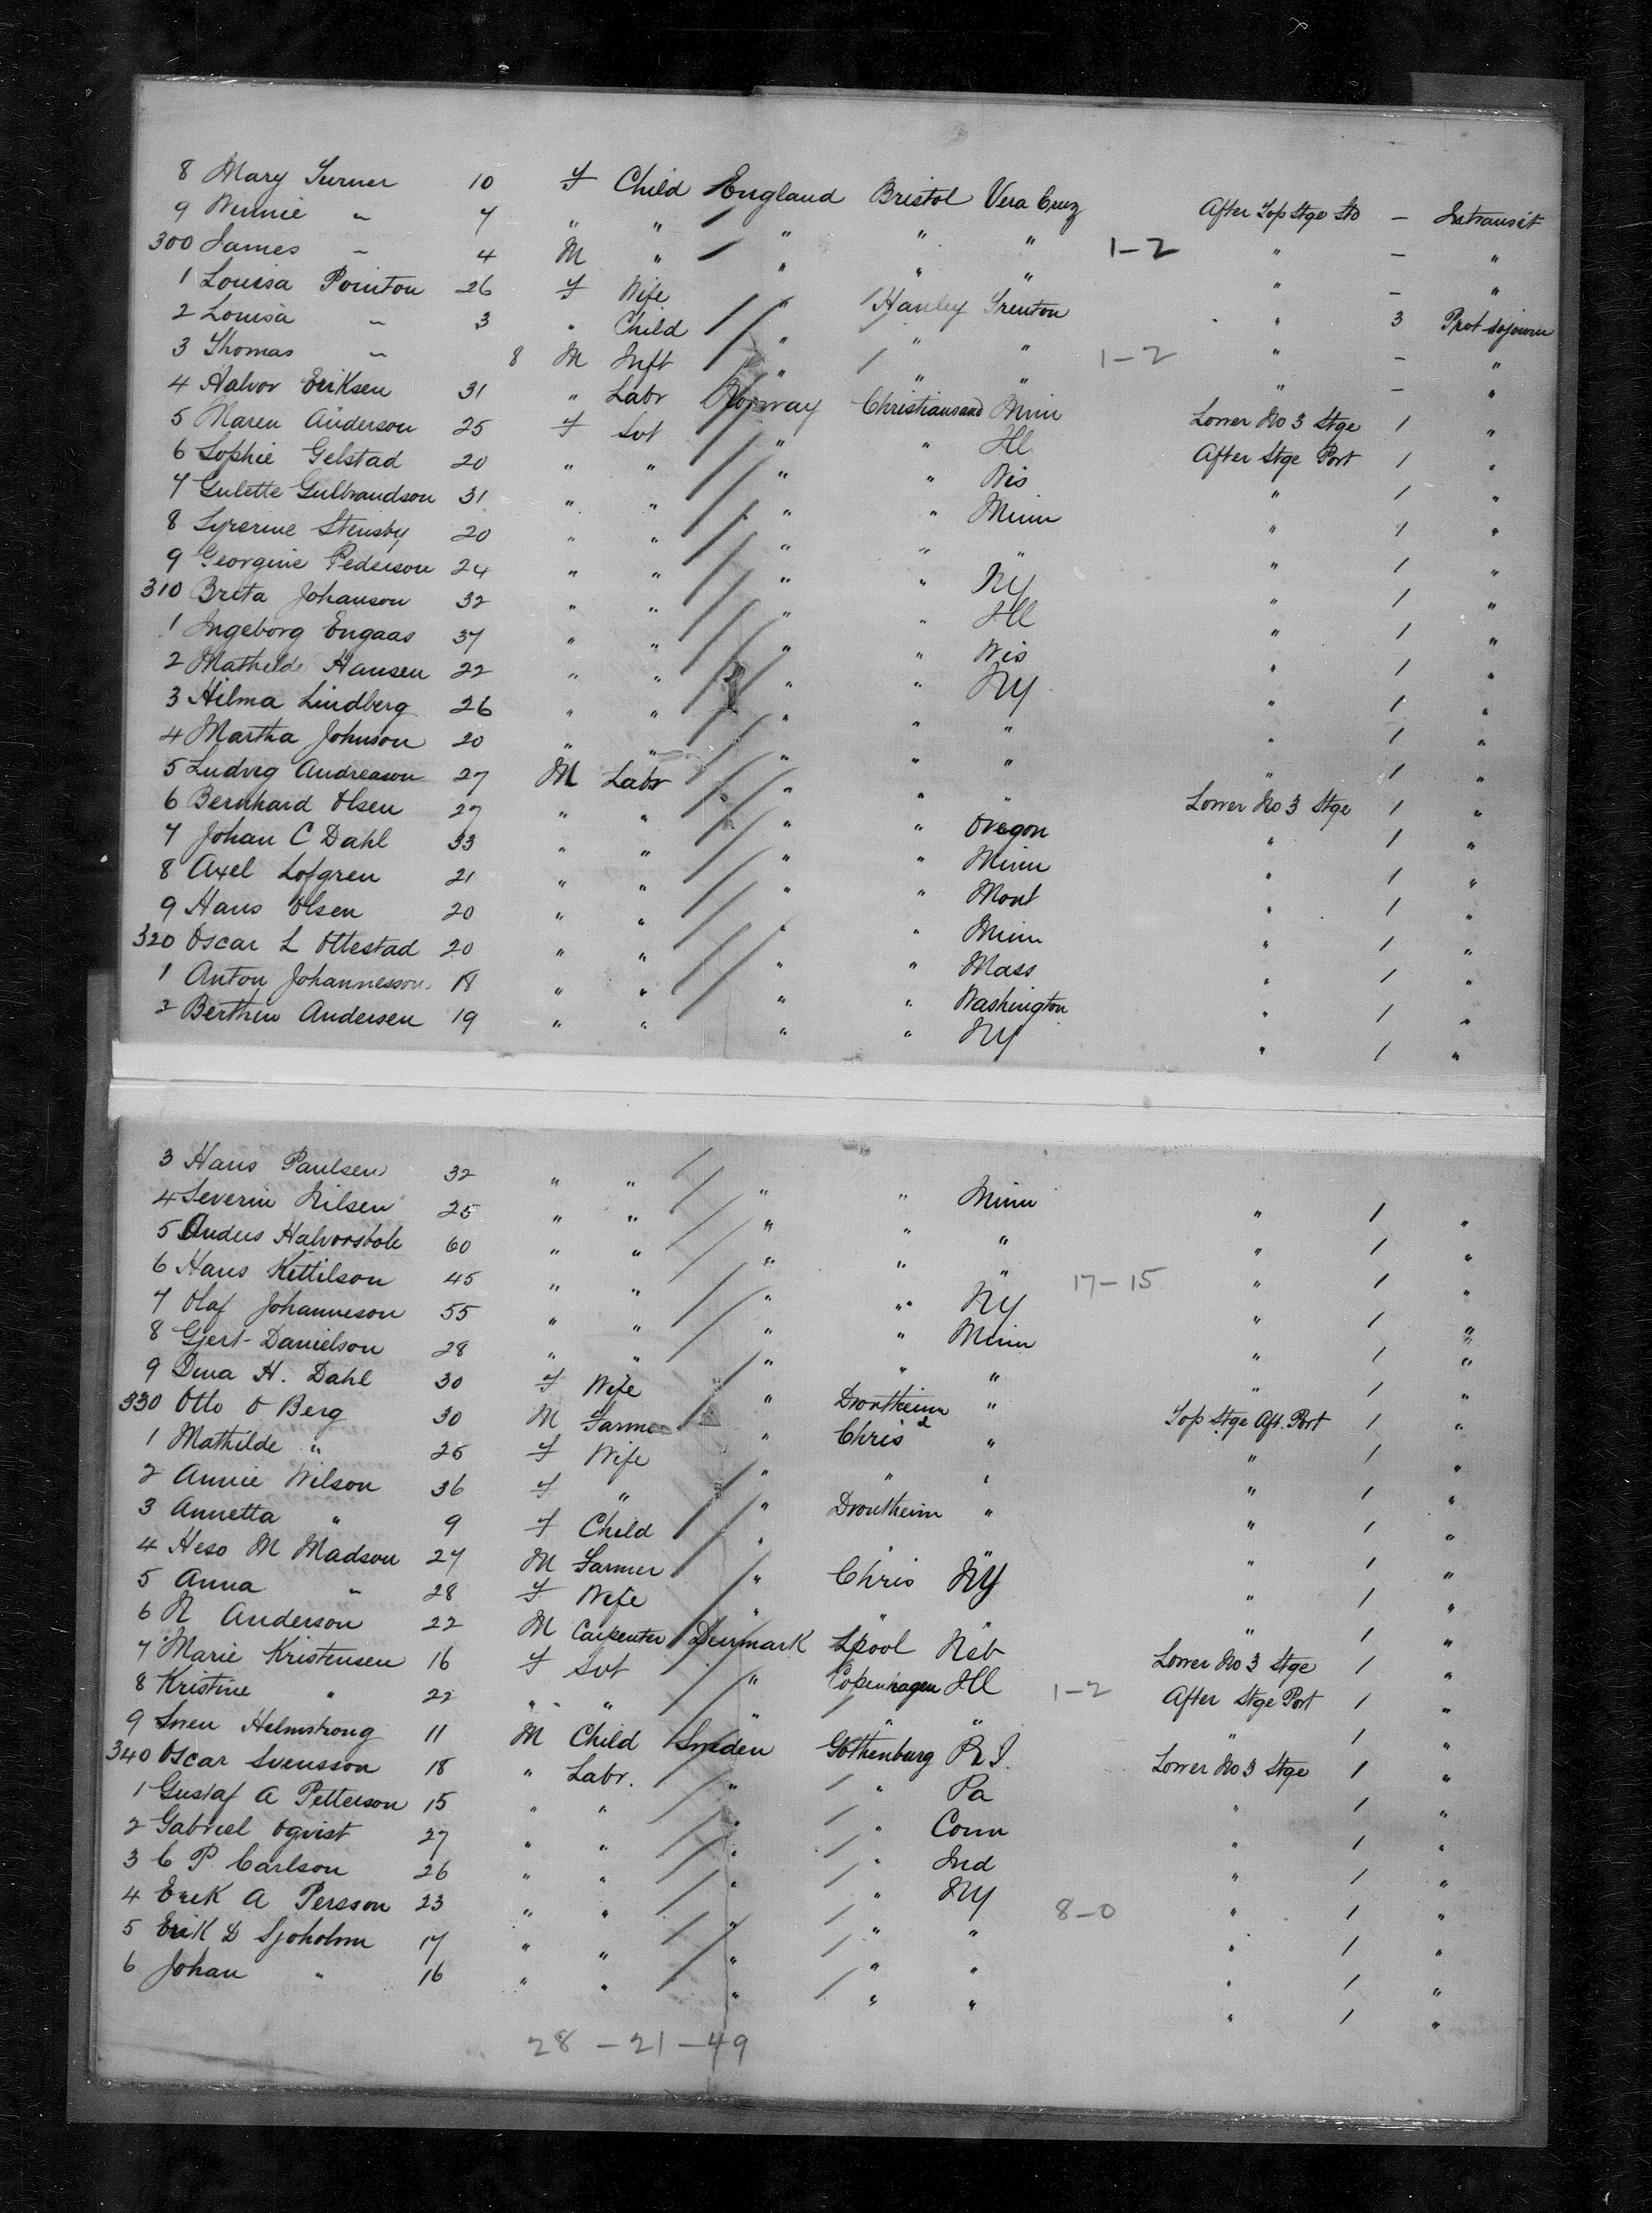 8 Mary Turner 10 F Child England Bristol Vera Cruz After Top Stge Std — In transit
9 Winnie " 7 " " " " " " — "
300 James " 4 M " " " " 1-2 " — "
1 Louisa Pointon 26 F Wife " Hanley Trenton " 3 Prot sojourn
2 Louisa " 3 " Child " " " " — "
3 Thomas " 8 M Inft " " " 1-2 " — "
4 Halvor Eriksen 31 " Labr Norway Christiansand Minn Lower No 3 Stge 1 "
5 Maren Anderson 25 F Svt " " Ill After Stge Port 1 "
6 Sophie Gelstad 20 " " " " Wis " 1 "
7 Gulette Gulbrandson 31 " " " " Minn " 1 "
8 Stensby 20 " " " " " " 1 "
9 Georgine Pederson 24 " " " " NY " 1 "
310 Breta Johanson 32 " " " " Ill " 1 "
1 Ingeborg Engaas 37 " " " " Wis " 1 "
2 Mathilde Hansen 22 " " " " NY " 1 "
3 Hilma Lindberg 26 " " " " " " 1 "
4 Martha Johnson 20 " " " " " " 1 "
5 Ludvig Andreason 27 M Labr " " " Lower No 3 Stge 1 "
6 Bernhard Olsen 27 " " " " Oregon " 1 "
7 Johan C Dahl 33 " " " " Minn " 1 "
8 Axel Lofgren 21 " " " " Mont " 1 "
9 Hans Olsen 20 " " " " Minn " 1 "
320 Oscar L Ottestad 20 " " " " Mass " 1 "
1 Anton Johannesson 18 " " " " Washington " 1 "
2 Andersen 19 " " " " NY " 1 "
3 Hans Paulsen 32 " " " " Minn " 1 "
4 Severin Nilsen 25 " " " " " " 1 "
5 Halvorsbole 60 " " " " " 17-15 " 1 "
6 Hans Kittilson 45 " " " " NY " 1 "
7 Olaf Johanneson 55 " " " " Minn " 1 "
8 Gjert Danielson 28 " " " " " " 1 "
9 Dina H. Dahl 30 F Wife " Drontheim " Top Stge Aft. Port 1 "
330 Otto O Berg 30 M Farmer " Chris'd " " 1 "
1 Mathilde " 25 F Wife " " " " 1 "
2 Annie Wilson 36 F " " Drontheim " " 1 "
3 Annetta " 9 F Child " " " " 1 "
4 M Madson 27 M Farmer " Chris NY " 1 "
5 Anna " 28 F Wife " " " " 1 "
6 N Anderson 22 M Carpenter Denmark Lpool Neb Lower No 3 Stge 1 "
7 Marie Kristensen 16 F Svt " Copenhagen Ill 1-2 After Stge Port 1 "
8 Kristine " 22 " " " " " " 1 "
9 Sven Helmstrong 11 M Child Sweden Gothenburg R I. Lower No 3 Stge 1 "
340 Oscar Svensson 18 " Labr. " " Pa " 1 "
1 Gustaf A Petterson 15 " " " " Conn " 1 "
2 Gabriel Ogvist 27 " " " " Ind " 1 "
3 C P Carlson 26 " " " " NY 8-0 " 1 "
4 Erik A Persson 23 " " " " " " 1 "
5 Erik D Sjoholm 17 " " " " " " 1 "
6 Johan " 16 " " " " " " 1 "
28 - 21 - 49